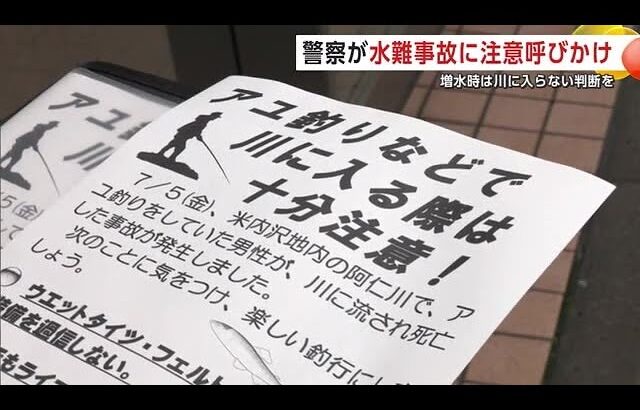 警察が水難事故に注意呼びかけ
増水時は川に入らない判断を
アユ釣りなどで
川に入る際は
十分注意！
7/5(金)、米内沢地内の阿仁川で、ア
ユ釣りをしていた男性が、川に流され死亡
した事故が発生しました。
次のことに気をつけ、楽しい釣行にし
しょう。
ウエットタイツ・フェルト
装備を過信しない。
もライフ
アユ釣
川に
/5(金)